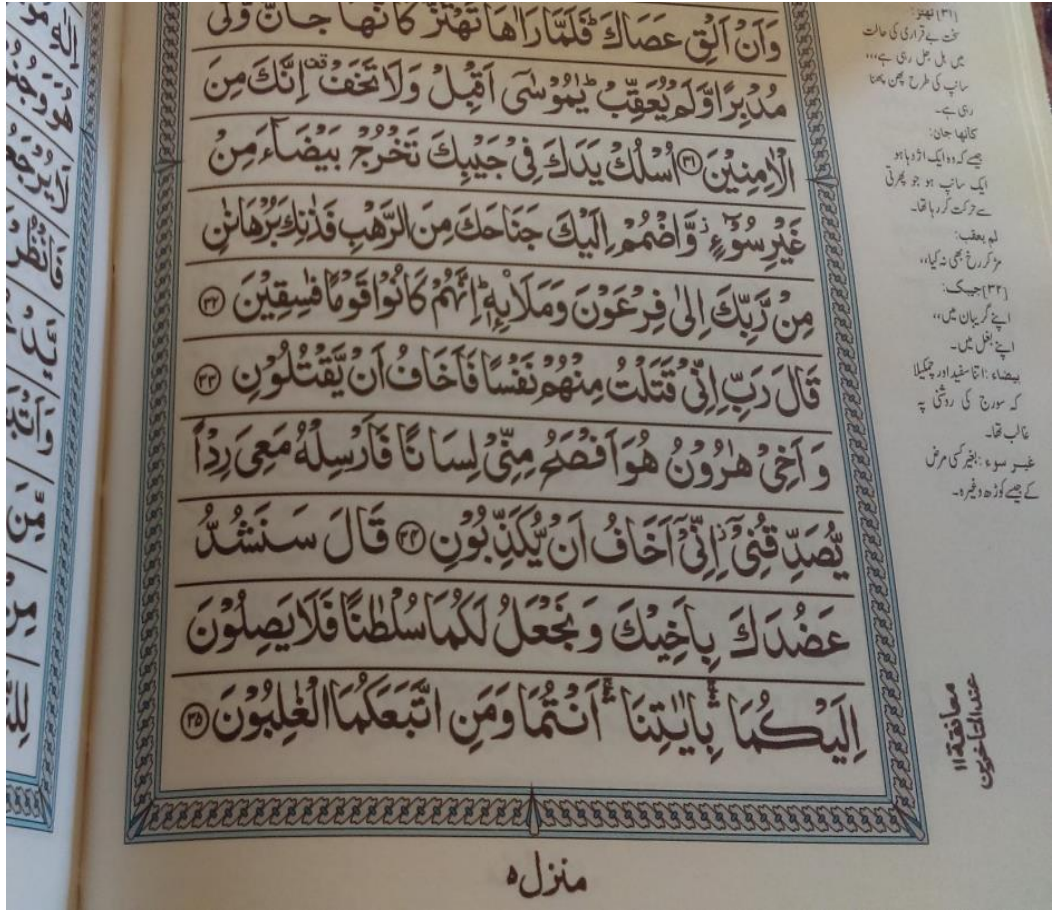 وَاَنْ اَلْقِ عَصَاكَ ؕ فَلَمَّا رَاٰهَا تَهْتَزُّ كَاَنَّهَا جَآنٌّ وَّلّٰى
مُدْبِرًا وَّلَمْ يُعَقِّبْ ؕ يٰمُوْسٰۤى اَقْبِلْ وَلَا تَخَفْ ۫ اِنَّكَ مِنَ
الْاٰمِنِيْنَ ۝۳۱ اُسْلُكْ يَدَكَ فِيْ جَيْبِكَ تَخْرُجْ بَيْضَآءَ مِنْ
غَيْرِ سُوْٓءٍ ؗ وَّاضْمُمْ اِلَيْكَ جَنَاحَكَ مِنَ الرَّهْبِ فَذٰنِكَ بُرْهَانٰنِ
مِنْ رَّبِّكَ اِلٰى فِرْعَوْنَ وَمَلَا۟ىِٕهٖ ؕ اِنَّهُمْ كَانُوْا قَوْمًا فٰسِقِيْنَ ۝۳۲
قَالَ رَبِّ اِنِّيْ قَتَلْتُ مِنْهُمْ نَفْسًا فَاَخَافُ اَنْ يَّقْتُلُوْنِ ۝۳۳
وَ اَخِيْ هٰرُوْنُ هُوَ اَفْصَحُ مِنِّيْ لِسَانًا فَاَرْسِلْهُ مَعِيَ رِدْاً
يُّصَدِّقُنِيْۤ ؗ اِنِّيْۤ اَخَافُ اَنْ يُّكَذِّبُوْنِ ۝۳۴ قَالَ سَنَشُدُّ
عَضُدَكَ بِاَخِيْكَ وَ نَجْعَلُ لَكُمَا سُلْطٰنًا فَلَا يَصِلُوْنَ
اِلَيْكُمَا ۛۚ بِاٰيٰتِنَاۤ ۛۚ اَنْتُمَا وَمَنِ اتَّبَعَكُمَا الْغٰلِبُوْنَ ۝۳۵
منزل ۵
(۳۱) تهتز:
سخت بے قراری کی حالت
میں ہل جل رہی ہے،،،
سانپ کی طرح پھن پھنا
رہی ہے۔
کانها جان:
جیسے کہ وہ ایک اژدہا ہو
ایک سانپ ہو جو پھرتی
سے حرکت کر رہا تھا۔
لم یعقب:
مڑ کر رخ بھی نہ کیا،،
(۳۲) جیبک:
اپنے گریبان میں،،
اپنے بغل میں۔
بیضاء: اتنا سفید اور چمکیلا
کہ سورج کی روشنی پہ
غالب تھا۔
غیر سوء: بغیر کسی مرض
کے جیسے کوڑھ وغیرہ۔
معانقة ۱۱
عند المتاخرین